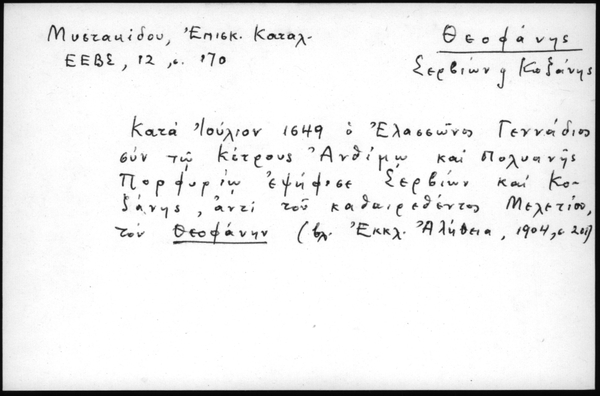 Μυστακίδου, Ἐπισκ. Καταλ.
ΕΕΒΣ, 12, σ. 170
Θεοφάνης
Σερβίων ϗ Κοζάνης
Κατά Ἰούλιον 1649 ὁ Ἐλασσῶνος Γεννάδιος
σύν τῷ Κίτρους Ἀνθίμῳ καί Πολυανῆς
Πορφυρίῳ ἐψήφισε Σερβίων καί Κο-
ζάνης, ἀντί τοῦ καθαιρεθέντος Μελετίου,
τόν Θεοφάνην (βλ. Ἐκκλ. Ἀλήθεια, 1904, σ.